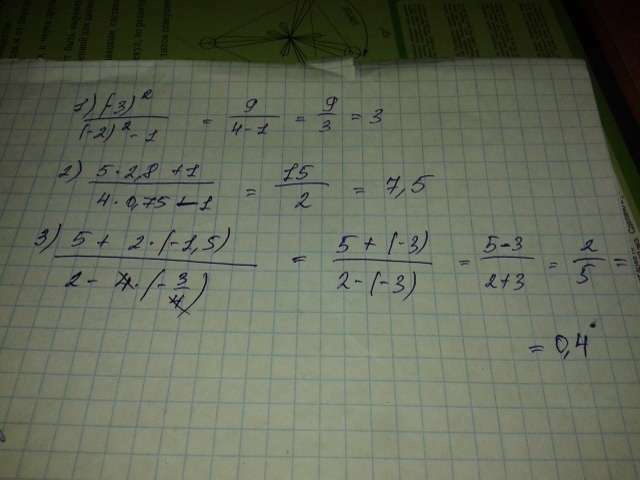 1) (-3)² / (-2)² - 1 = 9 / 4-1 = 9 / 3 = 3
2) 5·2,8 +1 / 4·0,75 -1 = 15 / 2 = 7,5
3) 5 + 2·(-1,5) / 2 - 4·(-3/4) = 5 + (-3) / 2-(-3) = 5-3 / 2+3 = 2 / 5 =
= 0,4